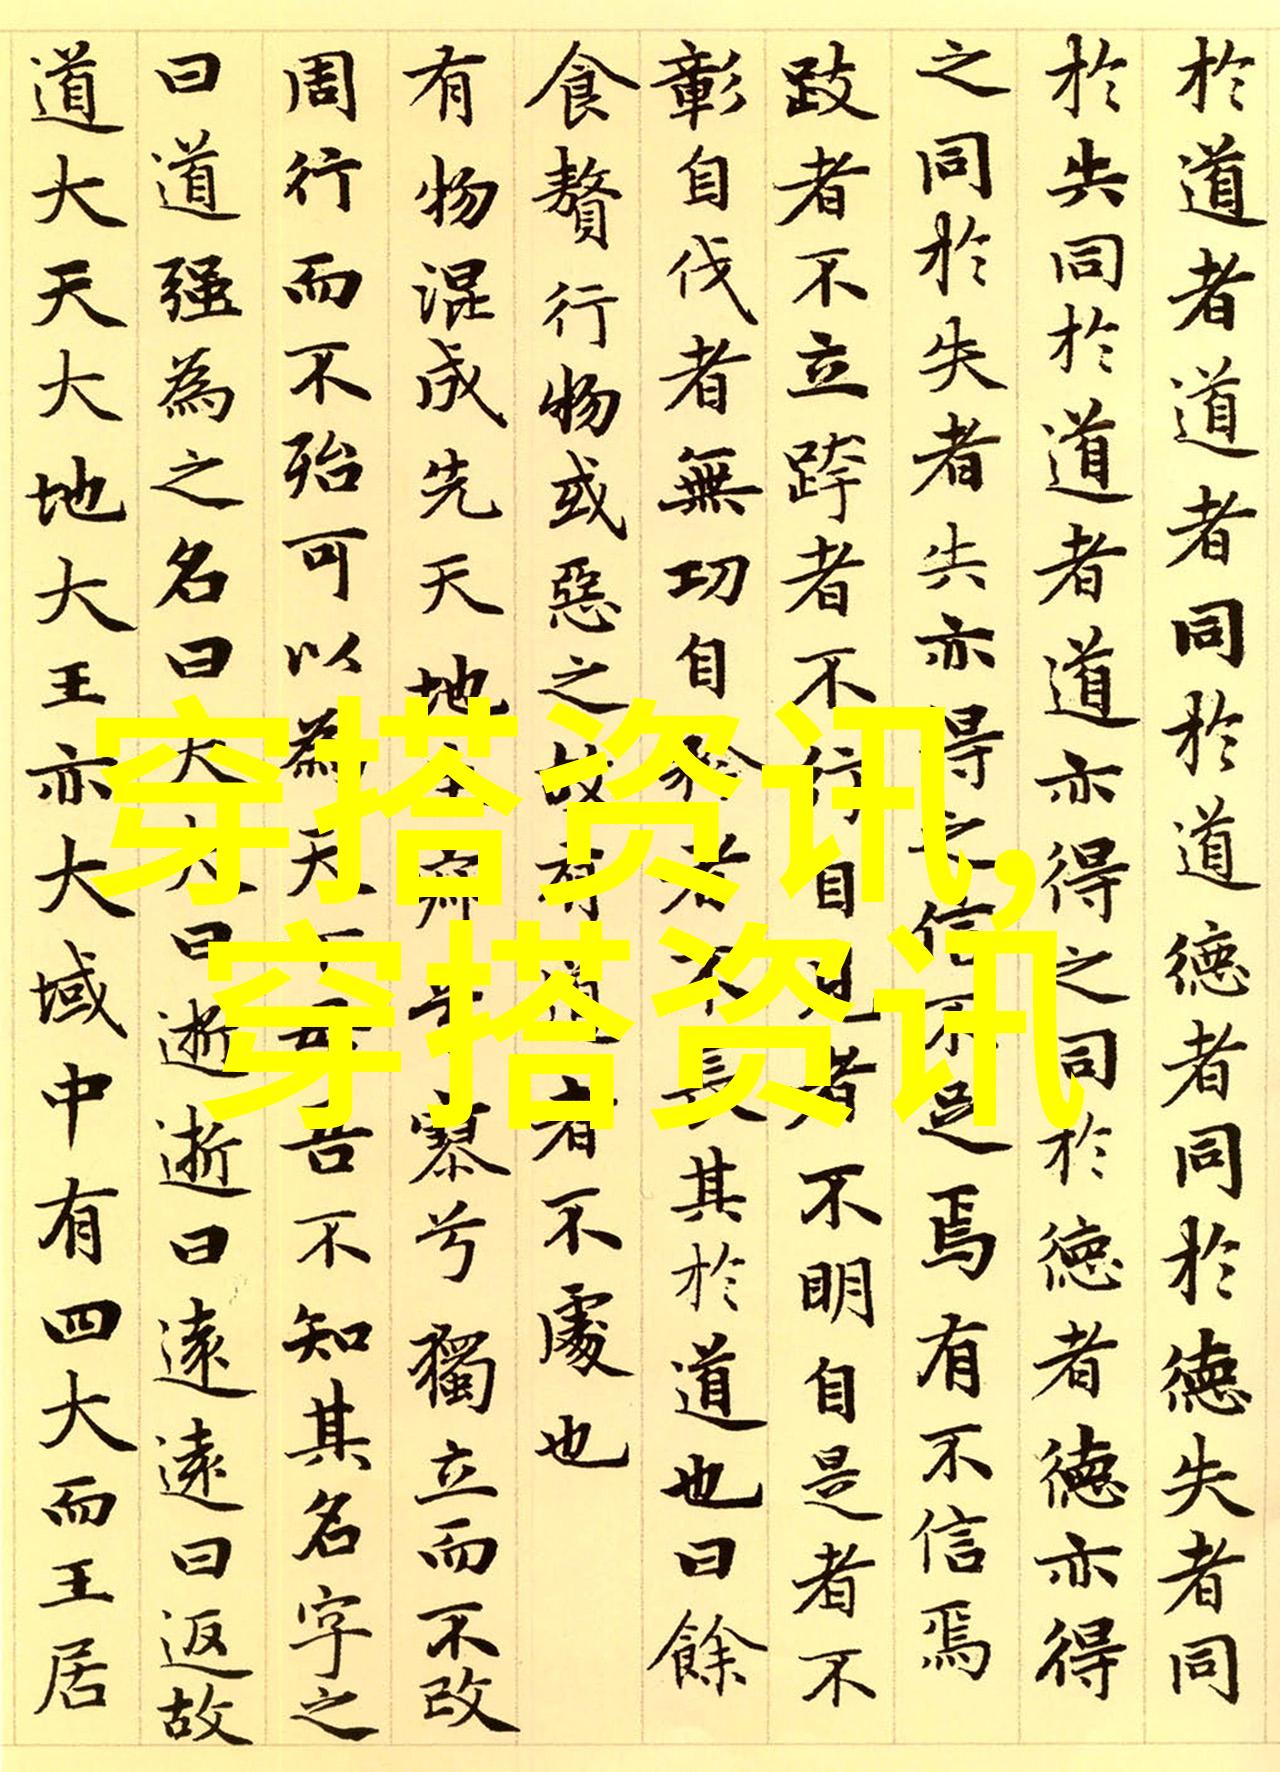 於道者道者同於道德者同於德失者同
於失同於道者道亦得之同於德者德亦得
之同於失者失亦得之信不足焉有不信焉
跂者不立跨者不行自見者不明自是者不
彰自伐者無功自矜者不長其於道也曰餘
食贅行物或惡之故有道者不處也
有物混成先天地生寂兮寥兮獨立而不改
周行而不殆可以為天下母吾不知其名字之
曰道强為之名曰大大曰逝逝曰遠遠曰返故
道大天大地大王亦大域中有四大而王居
穿搭资讯,
穿搭资讯